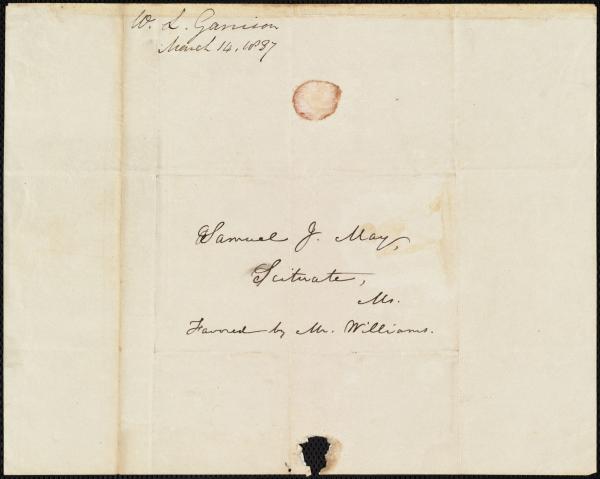 W. L. Garrison
March 14, 1837
Samuel J. May,
Scituate,
Ms.
Favored by Mr. Williams.